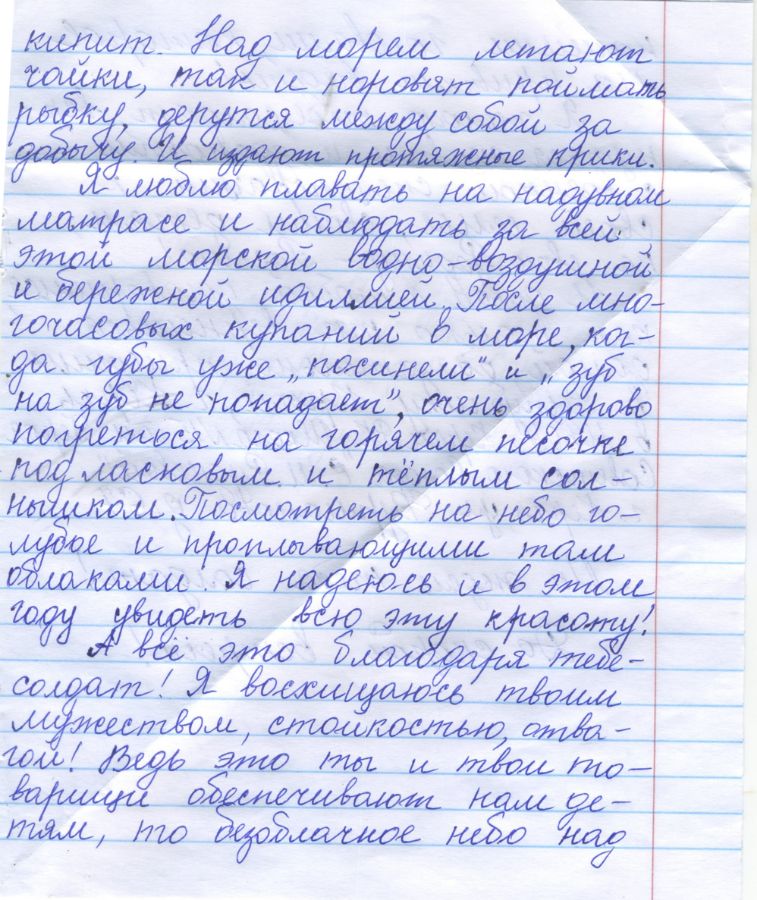 кипит. Над морем летают
чайки, так и норовят поймать
рыбку, дерутся между собой за
добычу. И издают протяжные крики.
Я люблю плавать на надувном
матрасе и наблюдать за всей
этой морской водно-воздушной
и бережной идиллией. После мно-
гочасовых купаний в море, ког-
да губы уже „посинели" и „зуб
на зуб не попадает", очень здорово
погреться на горячем песочке
под ласковым и тёплым сол-
нышком. Посмотреть на небо го-
лубое и проплывающими там
облаками. Я надеюсь и в этом
году увидеть всю эту красоту!
А всё это благодаря тебе-
солдат! Я восхищаюсь твоим
мужеством, стойкостью, отва-
гой! Ведь это ты и твои то-
варищи обеспечивают нам де-
тям, то безоблачное небо над